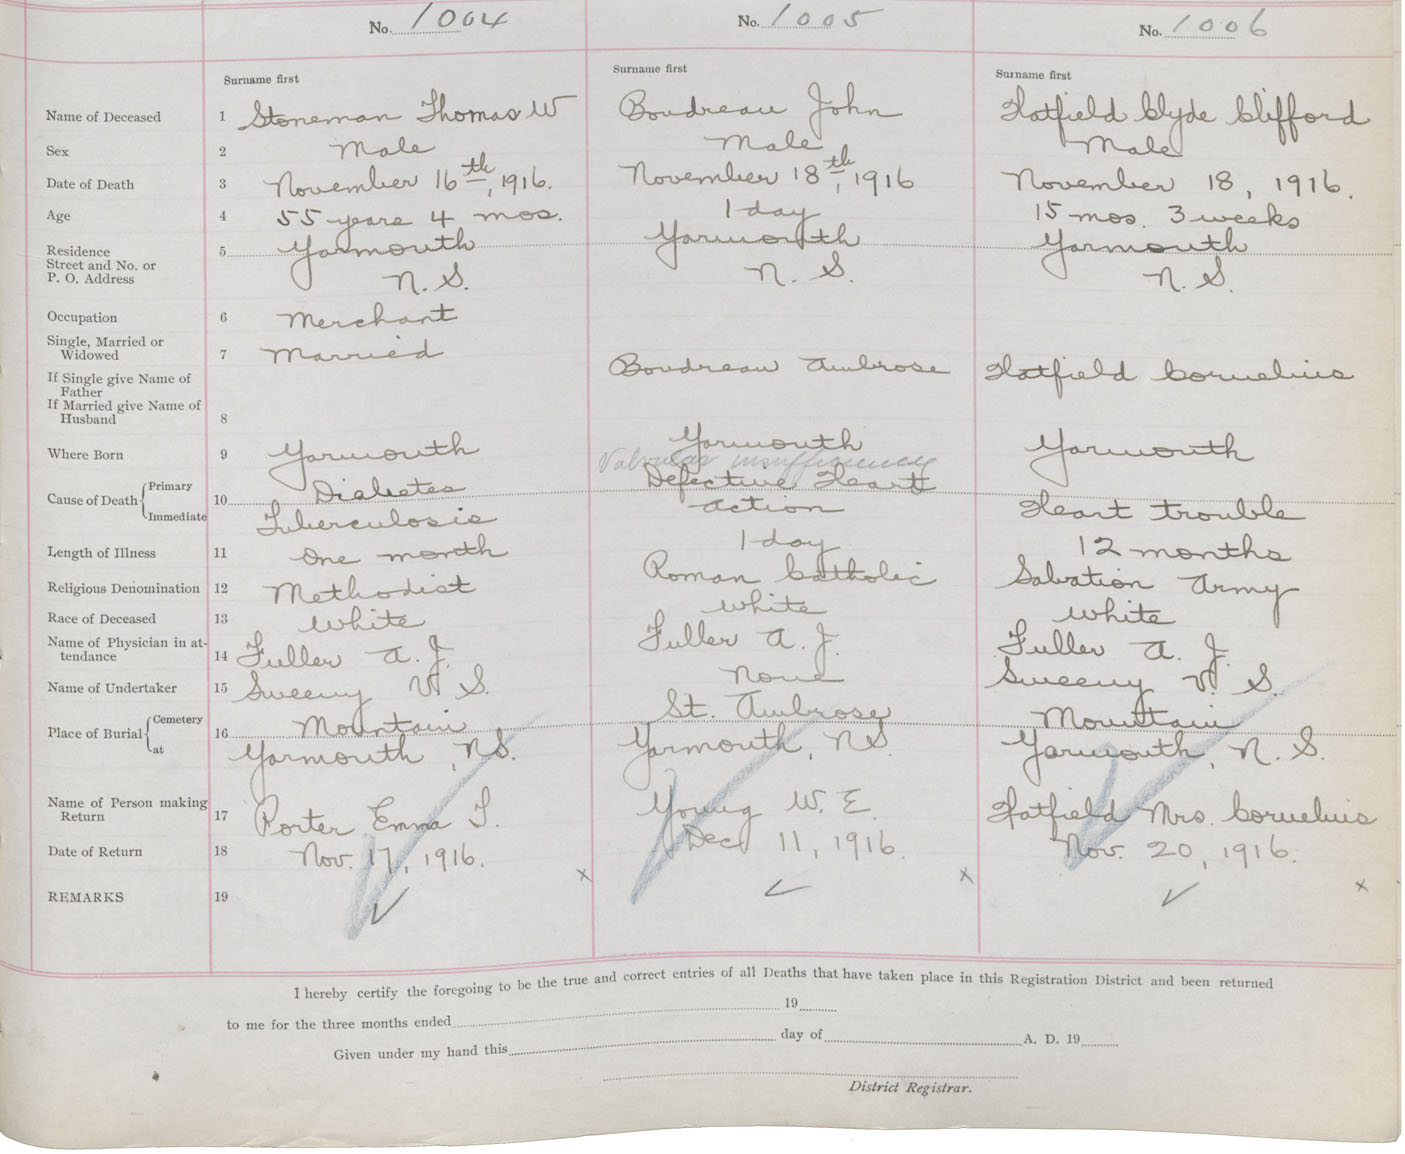 No. 1004 No. 1005 No. 1006
Surname first Surname first Surname first
Name of Deceased 1 Stoneman Thomas W Boudreau John Hatfield Clyde Clifford
Sex 2 Male Male Male
Date of Death 3 November 16th, 1916. November 18th, 1916 November 18, 1916.
Age 4 55 years 4 mos. 1 day 15 mos. 3 weeks
Residence 5 Yarmouth Yarmouth Yarmouth
Street and No. or
P. O. Address N. S. N. S. N. S.
Occupation 6 Merchant
Single, Married or
Widowed 7 Married
If Single give Name of Boudreau Ambrose Hatfield Cornelius
Father
If Married give Name of
Husband 8
Where Born 9 Yarmouth Yarmouth Yarmouth
Valvular insufficiency
Cause of Death Primary 10 Diabetes Defective Heart
Immediate Tuberculosis Action Heart trouble
Length of Illness 11 One month 1 day 12 months
Religious Denomination 12 Methodist Roman Catholic Salvation Army
Race of Deceased 13 White White White
Name of Physician in at-
tendance 14 Fuller A. J. Fuller A. J. Fuller A. J.
Name of Undertaker 15 Sweeny V. S. None Sweeny V. S.
Place of Burial Cemetery 16 Mountain St. Ambrose Mountain
at Yarmouth, N.S. Yarmouth, N.S. Yarmouth, N. S.
Name of Person making
Return 17 Porter Emma F. Young W. E. Hatfield Mrs. Cornelius
Date of Return 18 Nov. 17, 1916. Dec 11, 1916. Nov. 20, 1916.
REMARKS 19
I hereby certify the foregoing to be the true and correct entries of all Deaths that have taken place in this Registration District and been returned
to me for the three months ended 19
Given under my hand this day of A. D. 19
District Registrar.